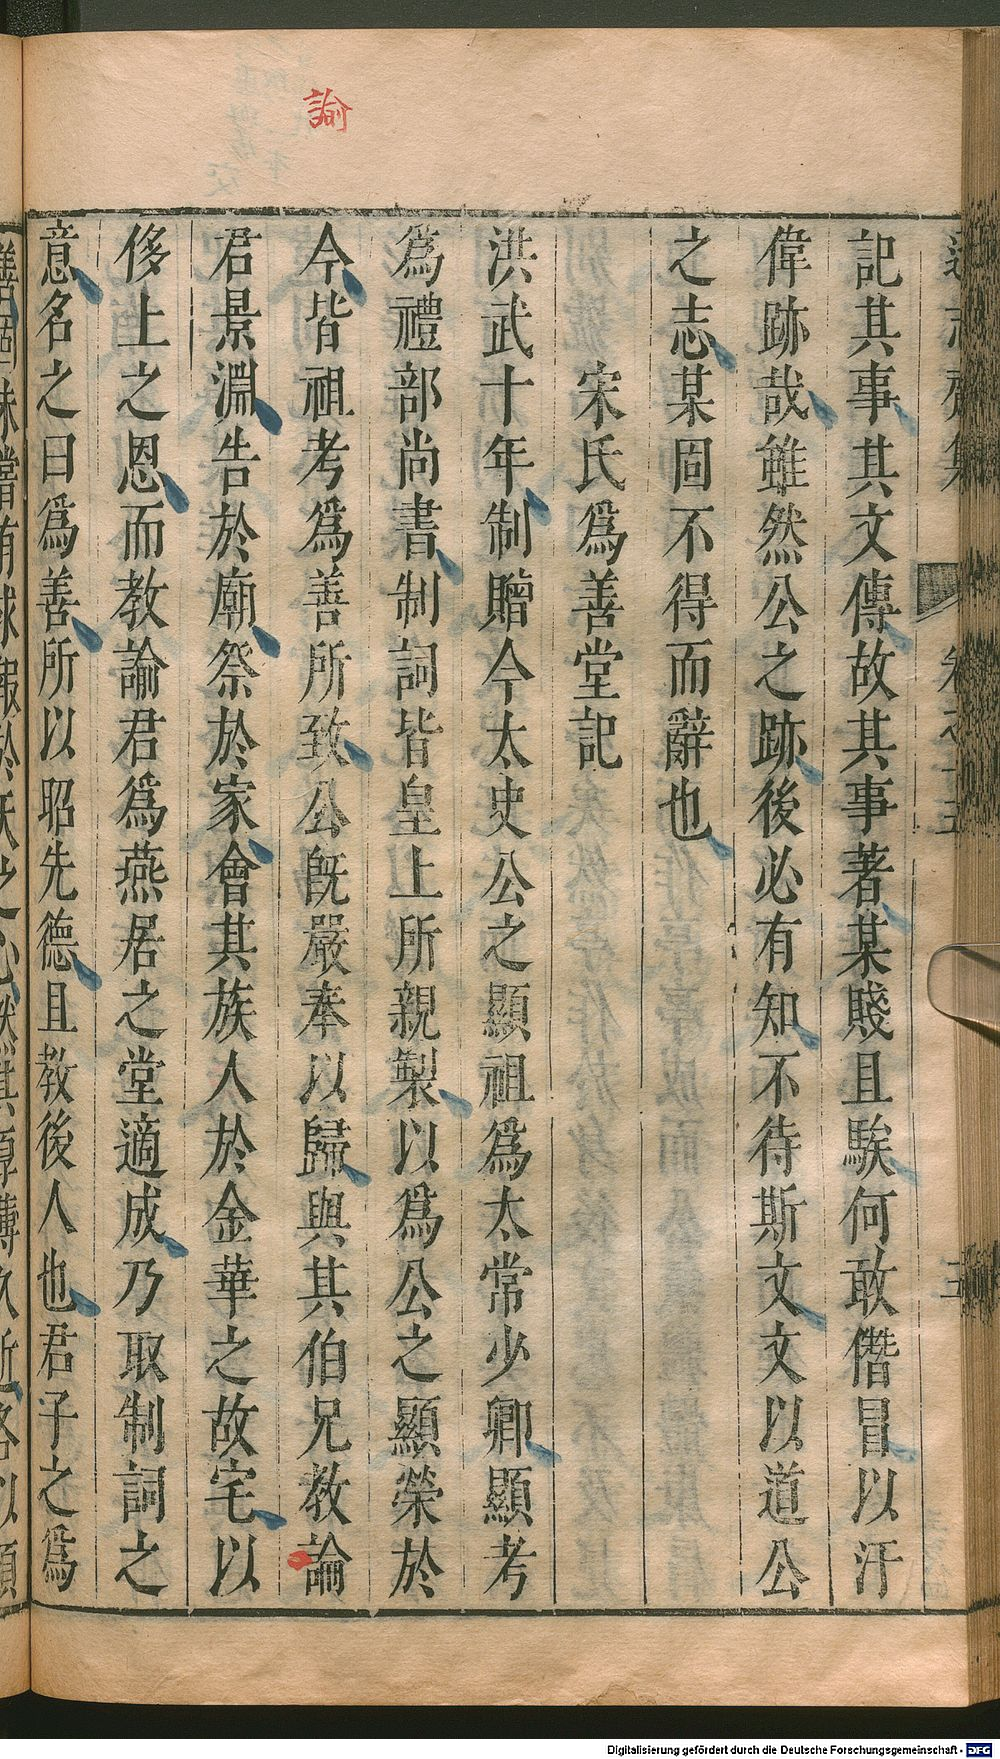 諭
記其事其文傳故其事著某賤且騃何敢僭冒以汙
偉跡哉雖然公之跡後必有知不待斯文文以道公
之志某固不得而辭也
宋氏爲善堂記
洪武十年制贈今太史公之顯祖爲太常少卿顯考
爲禮部尚書制詞皆皇上所親製以爲公之顯榮於
今皆祖考爲善所致公旣嚴奉以歸與其伯兄教論
君景淵告於廟祭於家會其族人於金華之故宅以
侈上之恩而教諭君爲燕居之堂適成乃取制詞之
意名之曰爲善所以昭先德且教後人也君子之爲
Digitalisierung gefördert durch die Deutsche Forschungsgemeinschaft - DFG